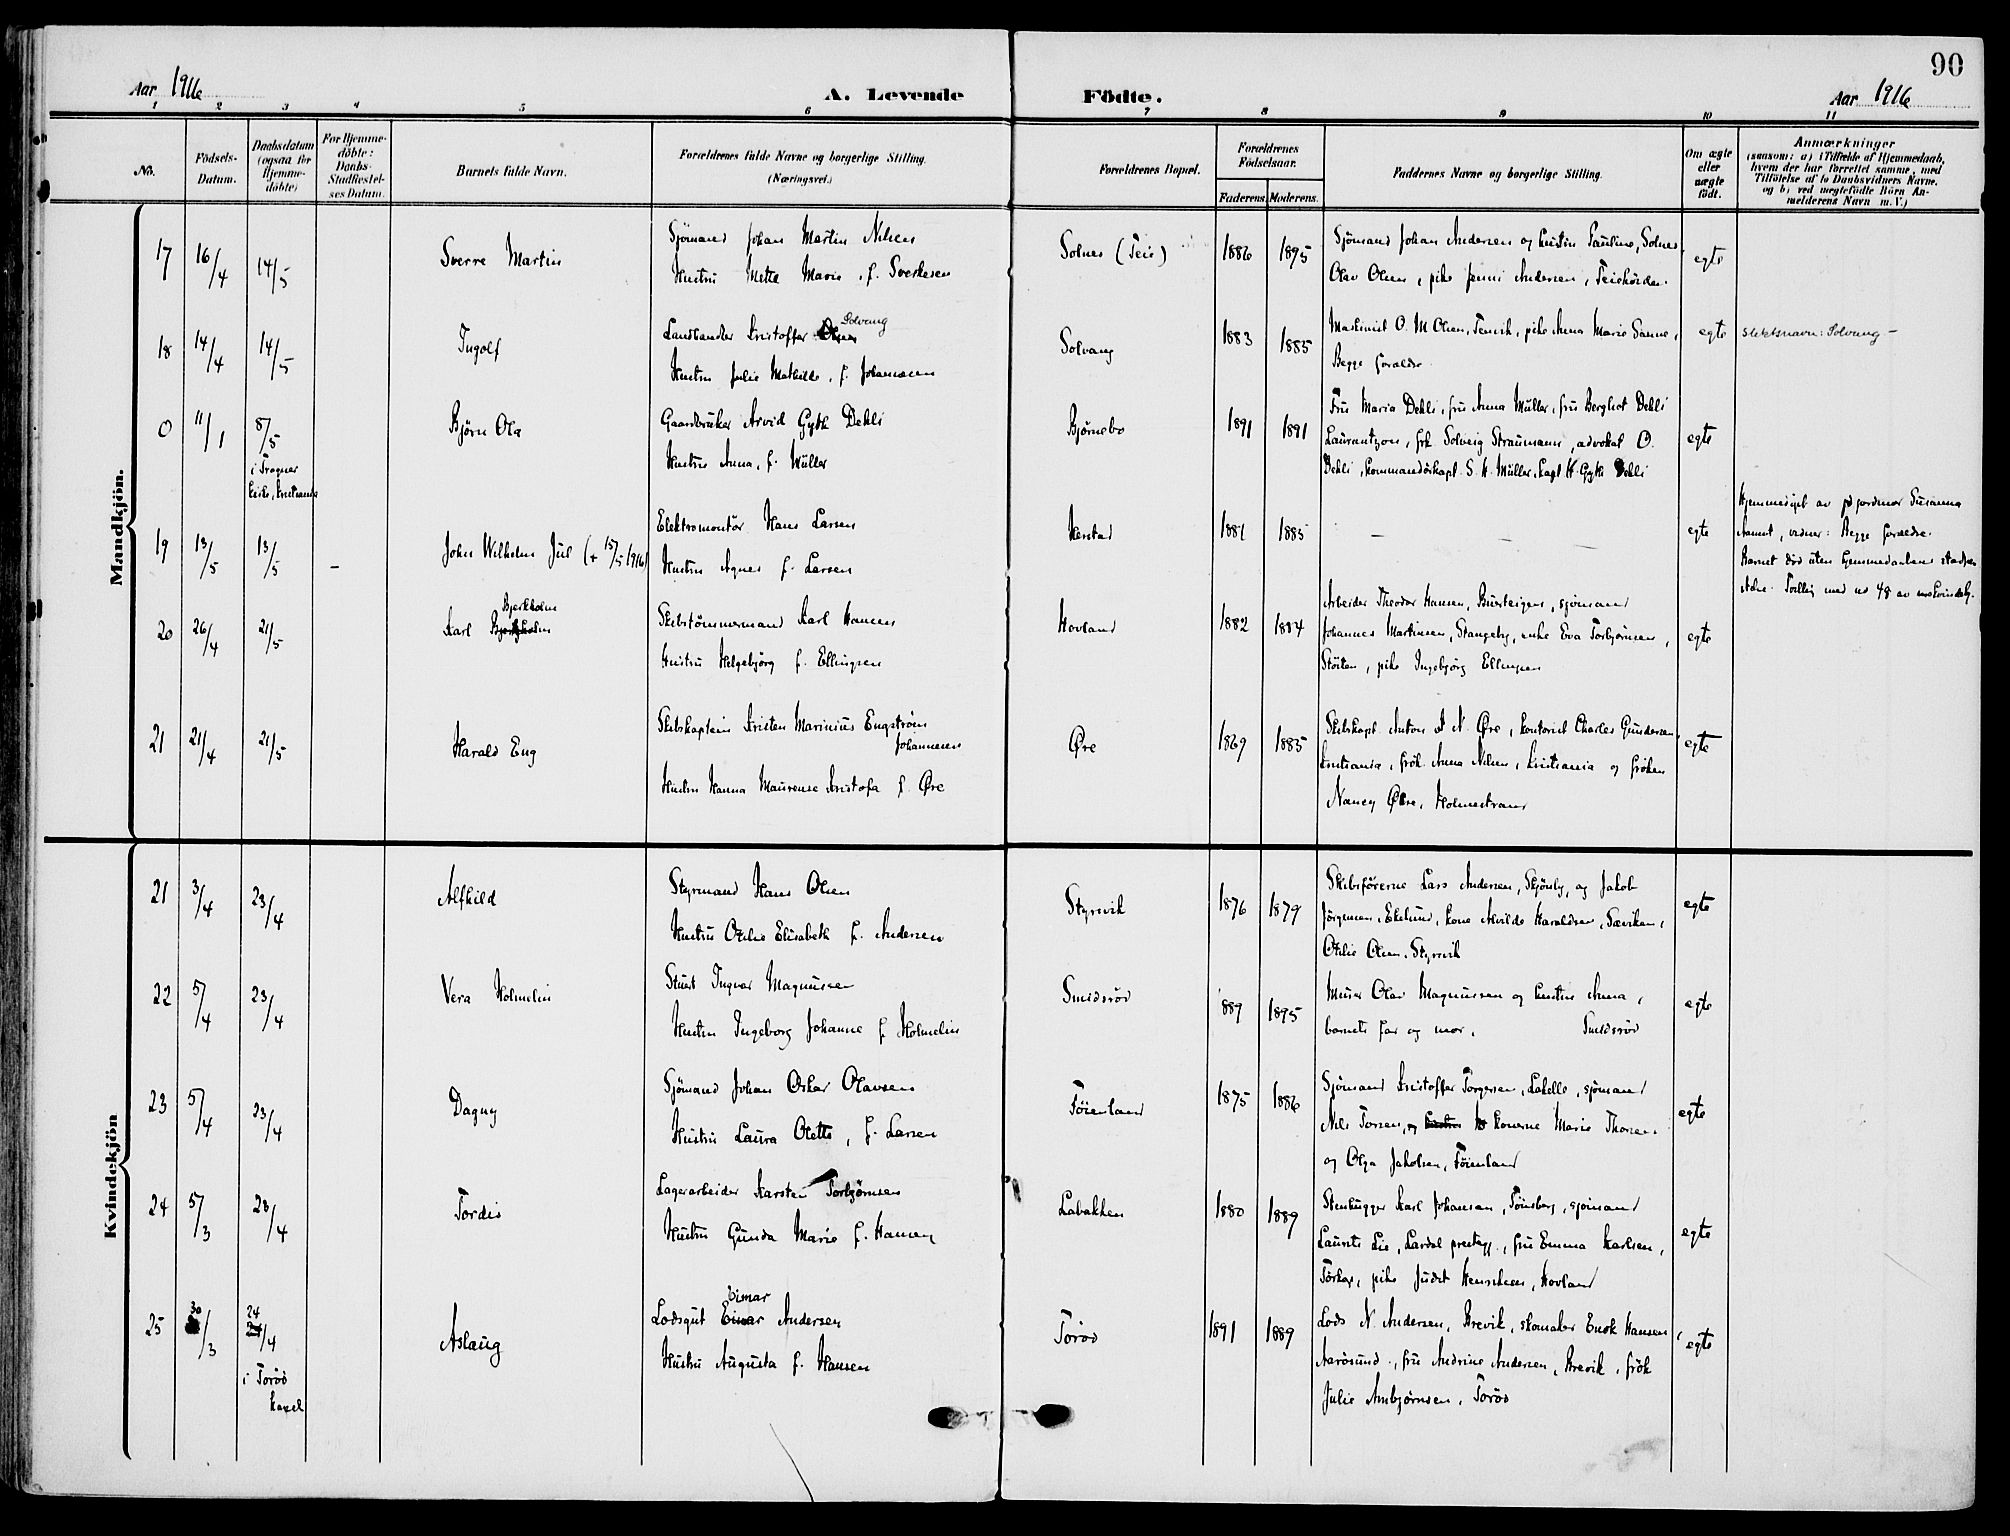 90
Aar 1916 A. Levende Födte. Aar 1916
1 2 3 4 5 6 7 8 9 10 11
No.
Födsels-
Datum.
Daabsdatum
(ogsaa for
Hjemme-
döbte)
For Hjemme-
döbte:
Daabs-
Stadfæstel-
ses Datum.
Barnets fulde Navn.
Forældrenes fulde Navne og borgerlige Stilling.
(Næringsvei.)
Forældrenes Bopæl.
Forældrenes
Födselsaar.
Faderens. Moderens.
Faddernes Navne og borgerlige Stilling.
Om ægte
eller
uægte
födt.
Anmærkninger
(saasom: a) i Tilfælde af Hjemmedaab,
hvem der har forrettet samme, med
Tilföielse af to Daabsvidners Navne,
og b) ved uægtefödte Börn An-
melderens Navn m. V.)
Mandkjön.
17 16/4 14/5 Sverre Martin
Sjömand Johan Martin Nilsen
Hustru Mette Marie, f. Sverkesen
Solnes (Teie) 1886 1895
Sjömand Johan Andersen og hustru Pauline, Solnes
Olav Olsen, pike Jenni Andersen, Teiehöiden
egte
18 14/4 14/5 Ingolf
Landhandler Kristoffer Olsen Solvang
Hustru Julie Mathilde, f. Johannesen
Solvang 1883 1885
Maskinist O. M. Olsen, Tenvik, pike Anna Marie Sanne,
Begge forældre.
egte slektsnavn: Solvang –
0 11/1 8/5
i Frogner
kirke, Kristiania
Björn Ola
Gaardbruker Arvid Gyth Dehli
Hustru Anna, f. Müller
Bjørnebo 1891 1891
Fru Maria Dehli, fru Anna Müller, fru Bergliot Dehli
Laurantzon, frk Solveig Straumann, advokat O.
Dehli, kommandörkapt. S. H. Müller, kapt H. Gyth Dehli
egte
19 13/5 13/5 – John Wilhelm Jul (+ 15/5 1916)
Elektromontör Hans Larsen
Hustru Agnes f. Larsen
Herstad 1881 1885 – – –
egte
Hjemmedöpt av jordmor Susanna
Aamot, vidner: Begge forældre.
Barnet död uten hjemmedaabens stadfæs
telse. Tvilling med no 48 av kvindekj.
20 26/4 21/5 Karl Bjerkholm Bjerkholm
Skibstömmermand Karl Hansen
Hustru Helgebjörg f. Ellingsen
Hovland 1882 1884
Arbeider Theodor Hansen, Bursteigen, sjömand
Johannes Martinsen, Stangeby, enke Eva Torbjörnsen,
Stöiten, pike Ingebjörg Ellingsen
egte
21 21/4 21/5 Harald Eng
Skibskaptein Kristen Marinius Engström
Johannesen
Hustru Hanna Maurense Kristofa f. Øre
Øre 1869 1885
Skibskapt. Anton A N. Øre, kontorist Charles Gundersen
Kristiania, frök. Anna Nilsen, Kristiania og fröken
Nancy Øre, Holmestrand
egte
Kvindekjön
21 3/4 23/4 Alfhild
Styrmand Hans Olsen
Hustru Otilie Elisabeth f. Andersen
Styrsvik 1876 1879
Skibsförerne Lars Andersen, Skjönly, og Jakob
Jörgensen, Ekelund, kone Alvilde Haraldsen, Sæviken,
Otilie Olsen, Styrsvik
egte
22 5/4 23/4 Vera Holmelin
Stuert Ingvar Magnussen
Hustru Ingeborg Johanne f. Holmelin
Smidsröd 1889 1895
Murer Olav Magnussen og hustru Anna,
barnets far og mor. Smidsröd
egte
23 5/4 23/4 Dagny
Sjömand Johan Oskar Olavsen
Hustru Laura Olette, f. Larsen
Föienland 1875 1886
Sjömand Kristoffer Torgersen, Lakelle, sjömand
Nils Torsen, og konerne Marie Thorsen
og Olga Jakobsen, Föienland
egte
24 5/3 23/4 Tordis
Lagerarbeider Karsten Torbjörnsen
Hustru Gunda Marie f. Hansen
Labakken 1880 1889
Stenhugger Karl Johansen, Tönsberg, sjömand
Laurits Lie, Lardal prestegj., fru Emma Karlsen,
pike Judit Henriksen, Hovland
egte
25 30/3 24/4
i Toröd
kapel
Aslaug
Lodsgut Einar Eimar Andersen
Hustru Augusta f. Hansen
Torød 1891 1889
Lods N. Andersen, Brevik, skomaker Enok Hansen,
Aarösund, fru Andrine Andersen, Brevik, frök
Julie Ambjörnsen, Torød
egte